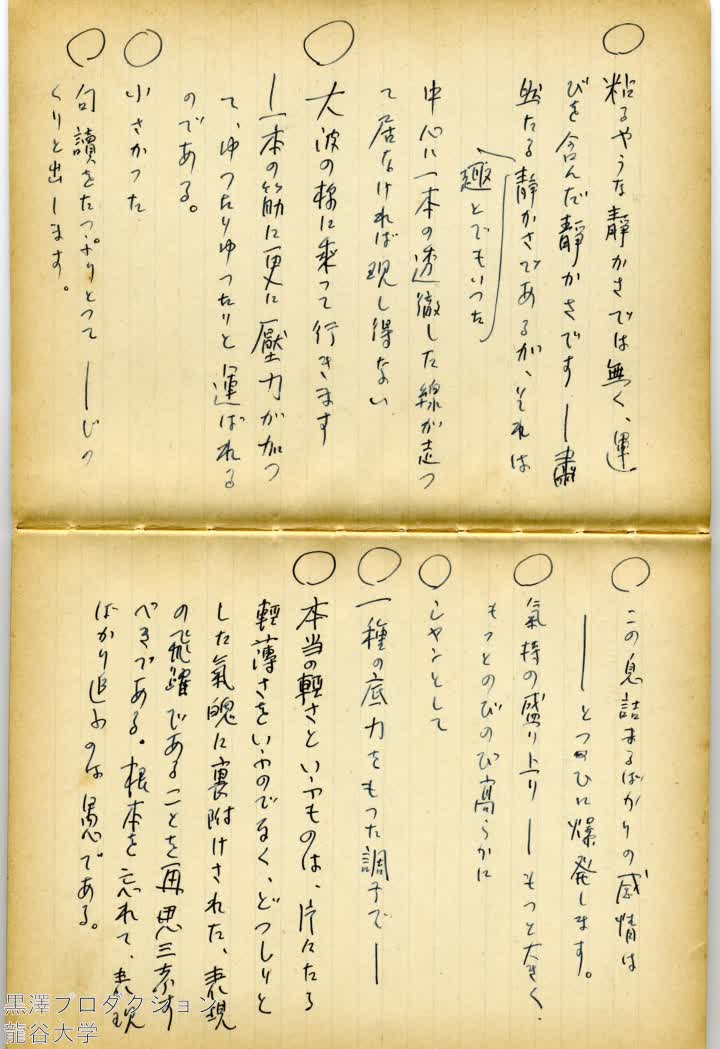 ○ 粘るやうな靜かさでは無く、運
びを含んだ靜かさです ー 肅
然たる靜かさであるが、それは
趣とでもいつた
中心に一本の透徹した線が走つ
て居なければ現し得ない
○ 大波の様に乘って行きます
ー一本の筋に更に壓力が加つ
て、ゆつたりゆつたりと運ばれる
のである。
○ 小さかつた
○ 句讀をたっぷりとつて ーじつ
くりと出します。
○ この息詰まるばかりの感情は
ーーとつひに爆発します。
○ 氣持の盛り上り ー もつと大きく、
もつとのびのび高らかに
○ シャンとして
○ 一種の底力をもつた調子でー
○ 本当の輕さといふものは、片々たる
輕薄さをいふのでなく、どつしりと
した氣魄に裏附けされた、表現
の飛躍であることを再思三考す
べきである。根本を忘れて、表現
ばかり追ふのは愚である。
黒澤プロダクション
龍谷大学